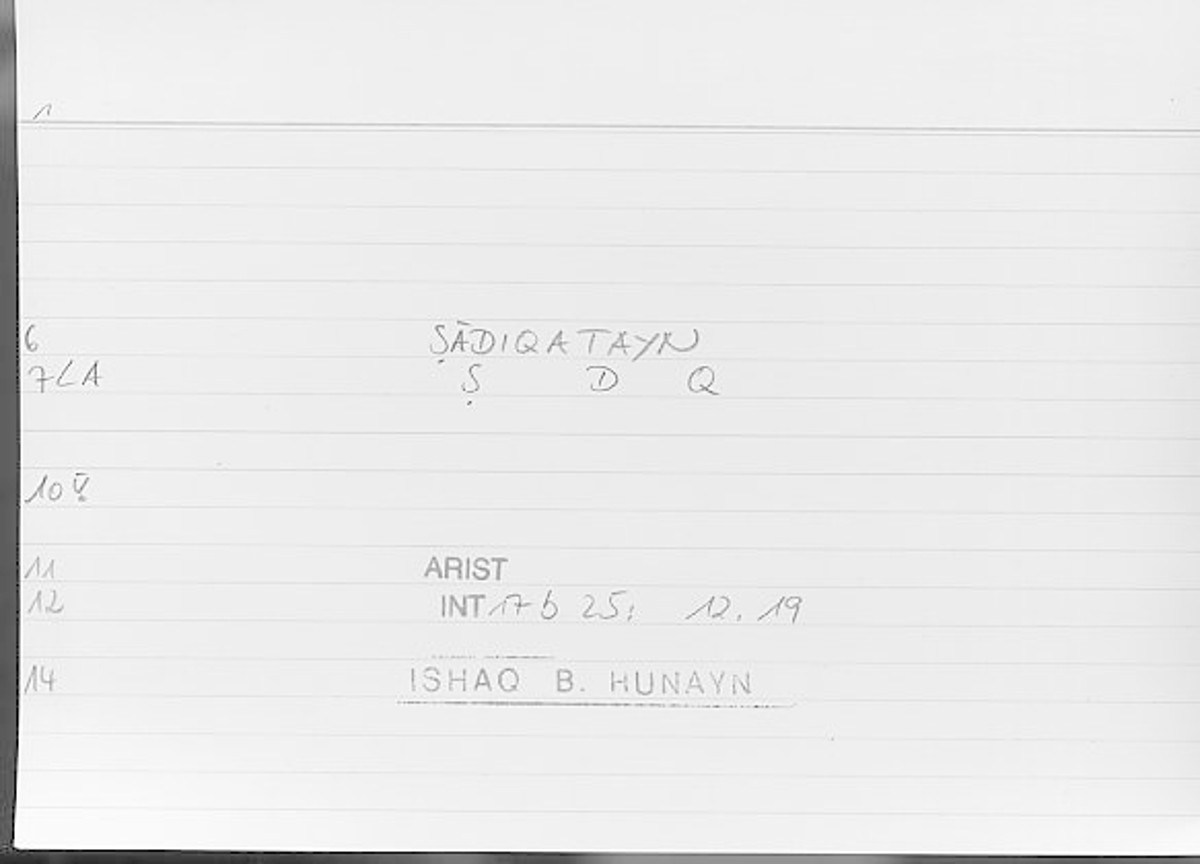 1
6 ṢĀDIQATAYN
7LA Ṣ D Q
10
11 ARIST
12 INT 17 b 25: 12, 19
14 ISHAQ B. HUNAYN